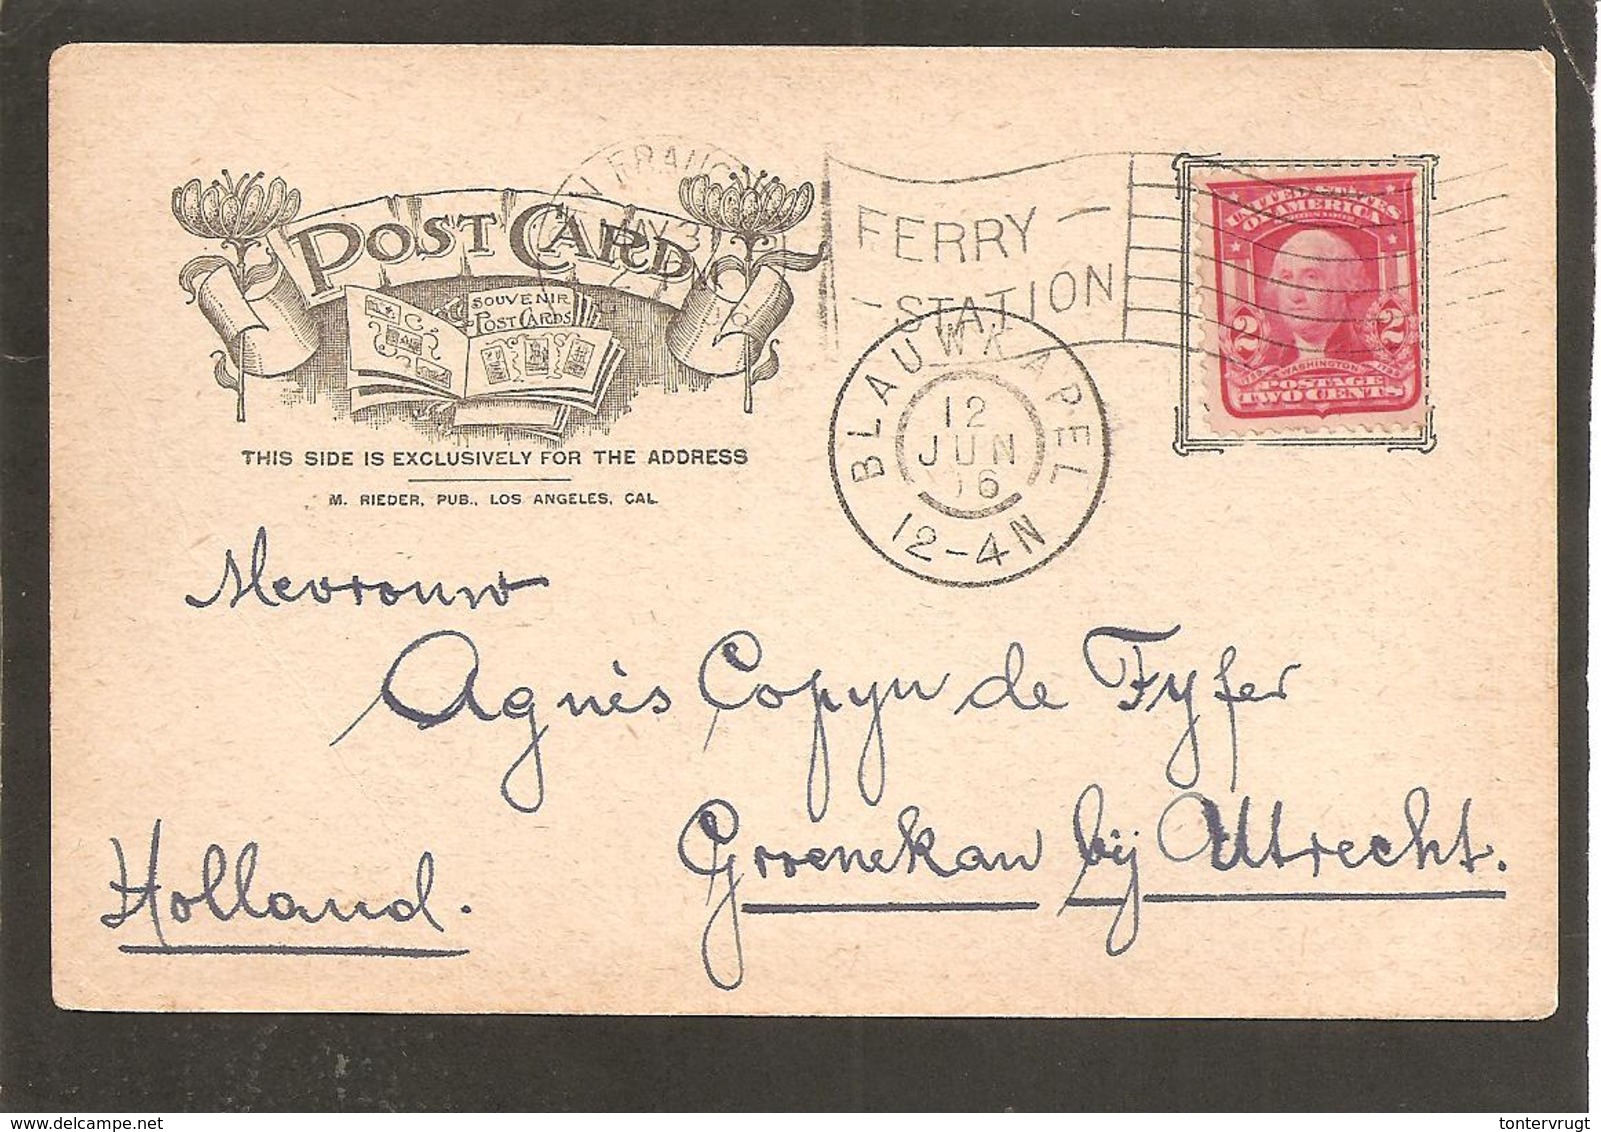 N FRANCI
MAY 3
POST CARD
SOUVENIR
POST CARDS
THIS SIDE IS EXCLUSIVELY FOR THE ADDRESS
M. RIEDER, PUB., LOS ANGELES, CAL.
FERRY
STATION
UNITED STATES
OF AMERICA
2 2
WASHINGTON
POSTAGE
TWO CENTS
BLAUWKAPEL
12
JUN
06
12-4N
Mevrouw
Agnès Copyn de Fyfer
Groenekan bij Utrecht.
Holland.
tontervrugt